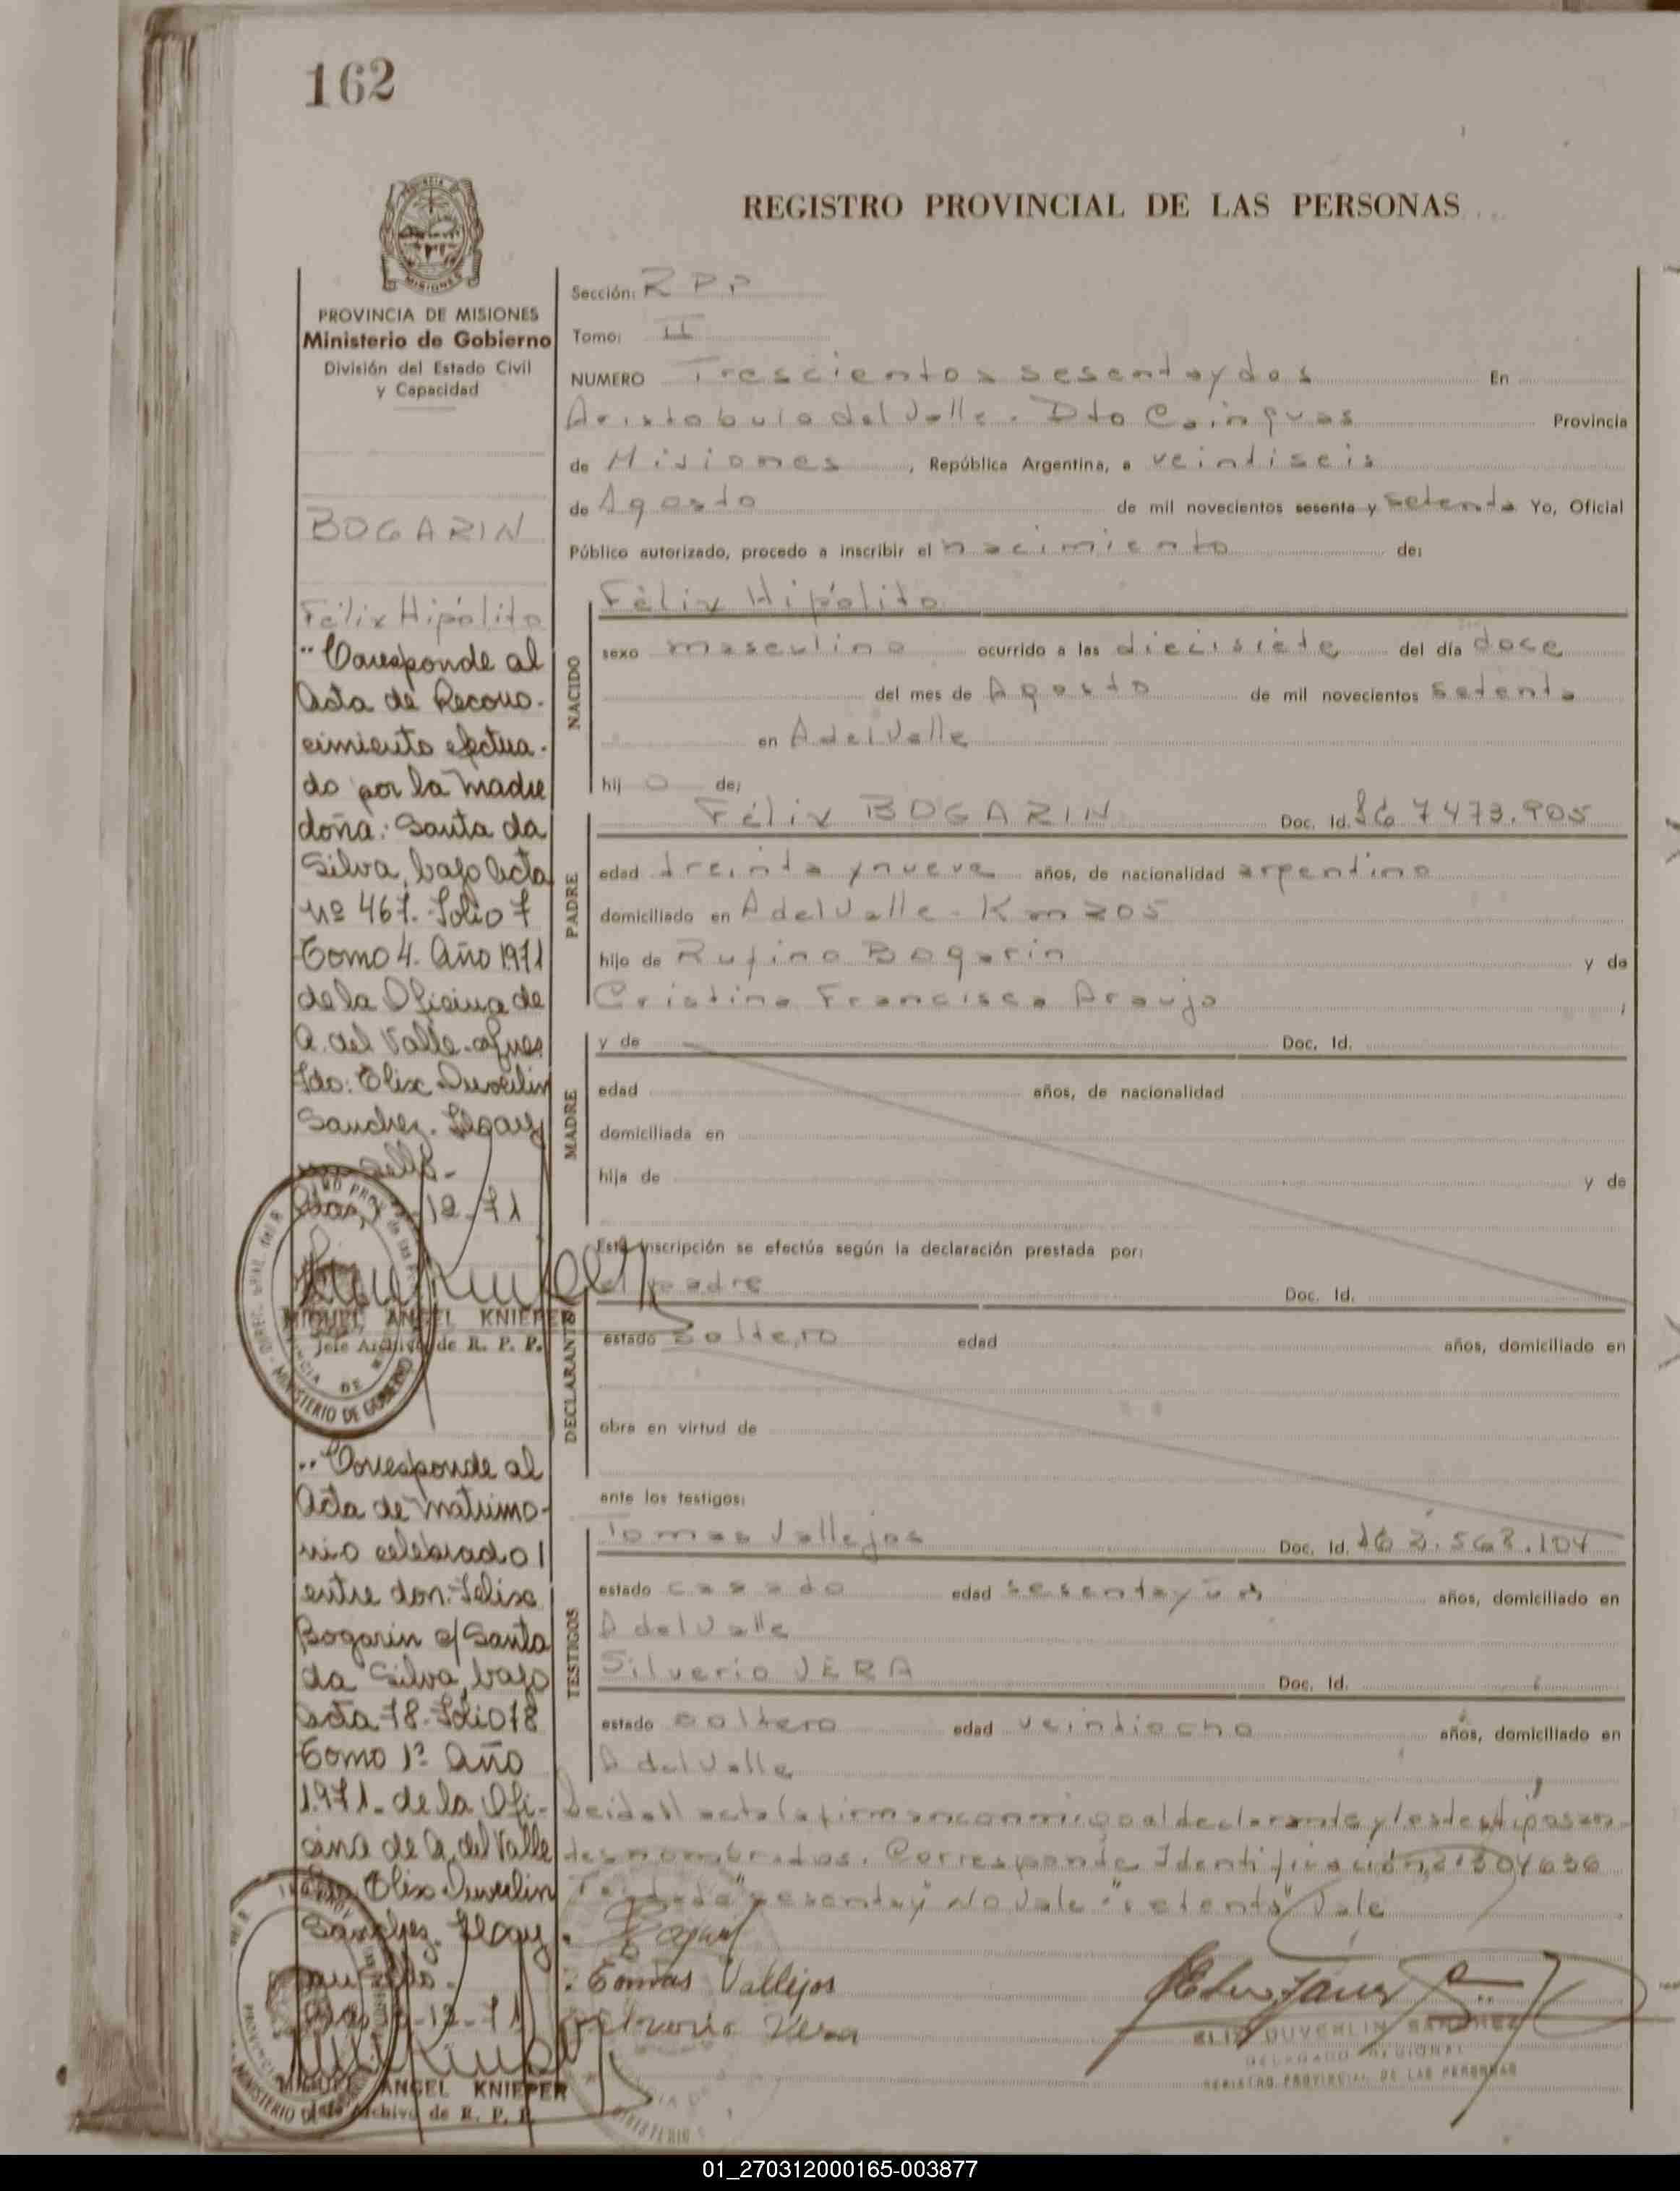 162
REGISTRO PROVINCIAL DE LAS PERSONAS
PROVINCIA DE MISIONES
Ministerio de Gobierno
División del Estado Civil
y Capacidad
BOGARIN
Félix Hipólito
"Corresponde al
Acta de Recono-
cimiento efectua-
do por la madre
doña: Santa da
Silva, bajo acta
Nº 467. Folio 7
Tomo 4. Año 1971
de la Oficina de
A. del Valle.
Fdo: Elix Duverlin
Sanchez. Hay
un sello.-
12-71
MIGUEL ANGEL KNIEPER
Jefe Archivo de R. P. P.
"Corresponde al
Acta de matrimo-
nio celebrado
entre don: Felix
Bogarin c/ Santa
da Silva, bajo
acta 78. Folio 78
Tomo 1º Año
1.971. de la Ofi-
cina de A. del Valle
Elix Duverlin
Sánchez. Hay
un sello.
-12-71
MIGUEL ANGEL KNIEPER
Jefe Archivo de R. P. P.
Sección: RPP
Tomo: II
NUMERO Trescientos sesenta y dos En
Aristobulo del Valle. Dto Cainguas Provincia
de Misiones, República Argentina, a veintiseis
de Agosto de mil novecientos sesenta y setenta Yo, Oficial
Público autorizado, procedo a inscribir el nacimiento de:
NACIDO
Félix Hipólito
sexo masculino ocurrido a las diecisiete del día doce
del mes de Agosto de mil novecientos setenta
en A del Valle
hij o de:
PADRE
Félix BOGARIN Doc. Id. 7473.905
edad treinta y nueve años, de nacionalidad argentino
domiciliado en A del Valle - Km 205
hijo de Rufino Bogarin y de
Cristina Francisca Araujo
MADRE
y de Doc. Id.
edad años, de nacionalidad
domiciliada en
hija de y de
Esta inscripción se efectúa según la declaración prestada por:
DECLARANTE
el padre Doc. Id.
estado soltero edad años, domiciliado en
obra en virtud de
ante los testigos:
TESTIGOS
Tomas Vallejos Doc. Id. 3.563.104
estado casado edad sesenta y un años, domiciliado en
A del Valle
Silverio VERA Doc. Id.
estado soltero edad veintiocho años, domiciliado en
A del Valle
Leida el acta la firman conmigo el declarante y los testigos an-
tes nombrados. Corresponde Identificación 21304636
Testado "sesenta y" No Vale "setenta" Vale
Tomas Vallejos
Silverio Vera
ELIX DUVERLIN SANCHEZ
DELEGADO REGIONAL
REGISTRO PROVINCIAL DE LAS PERSONAS
01_270312000165-003877